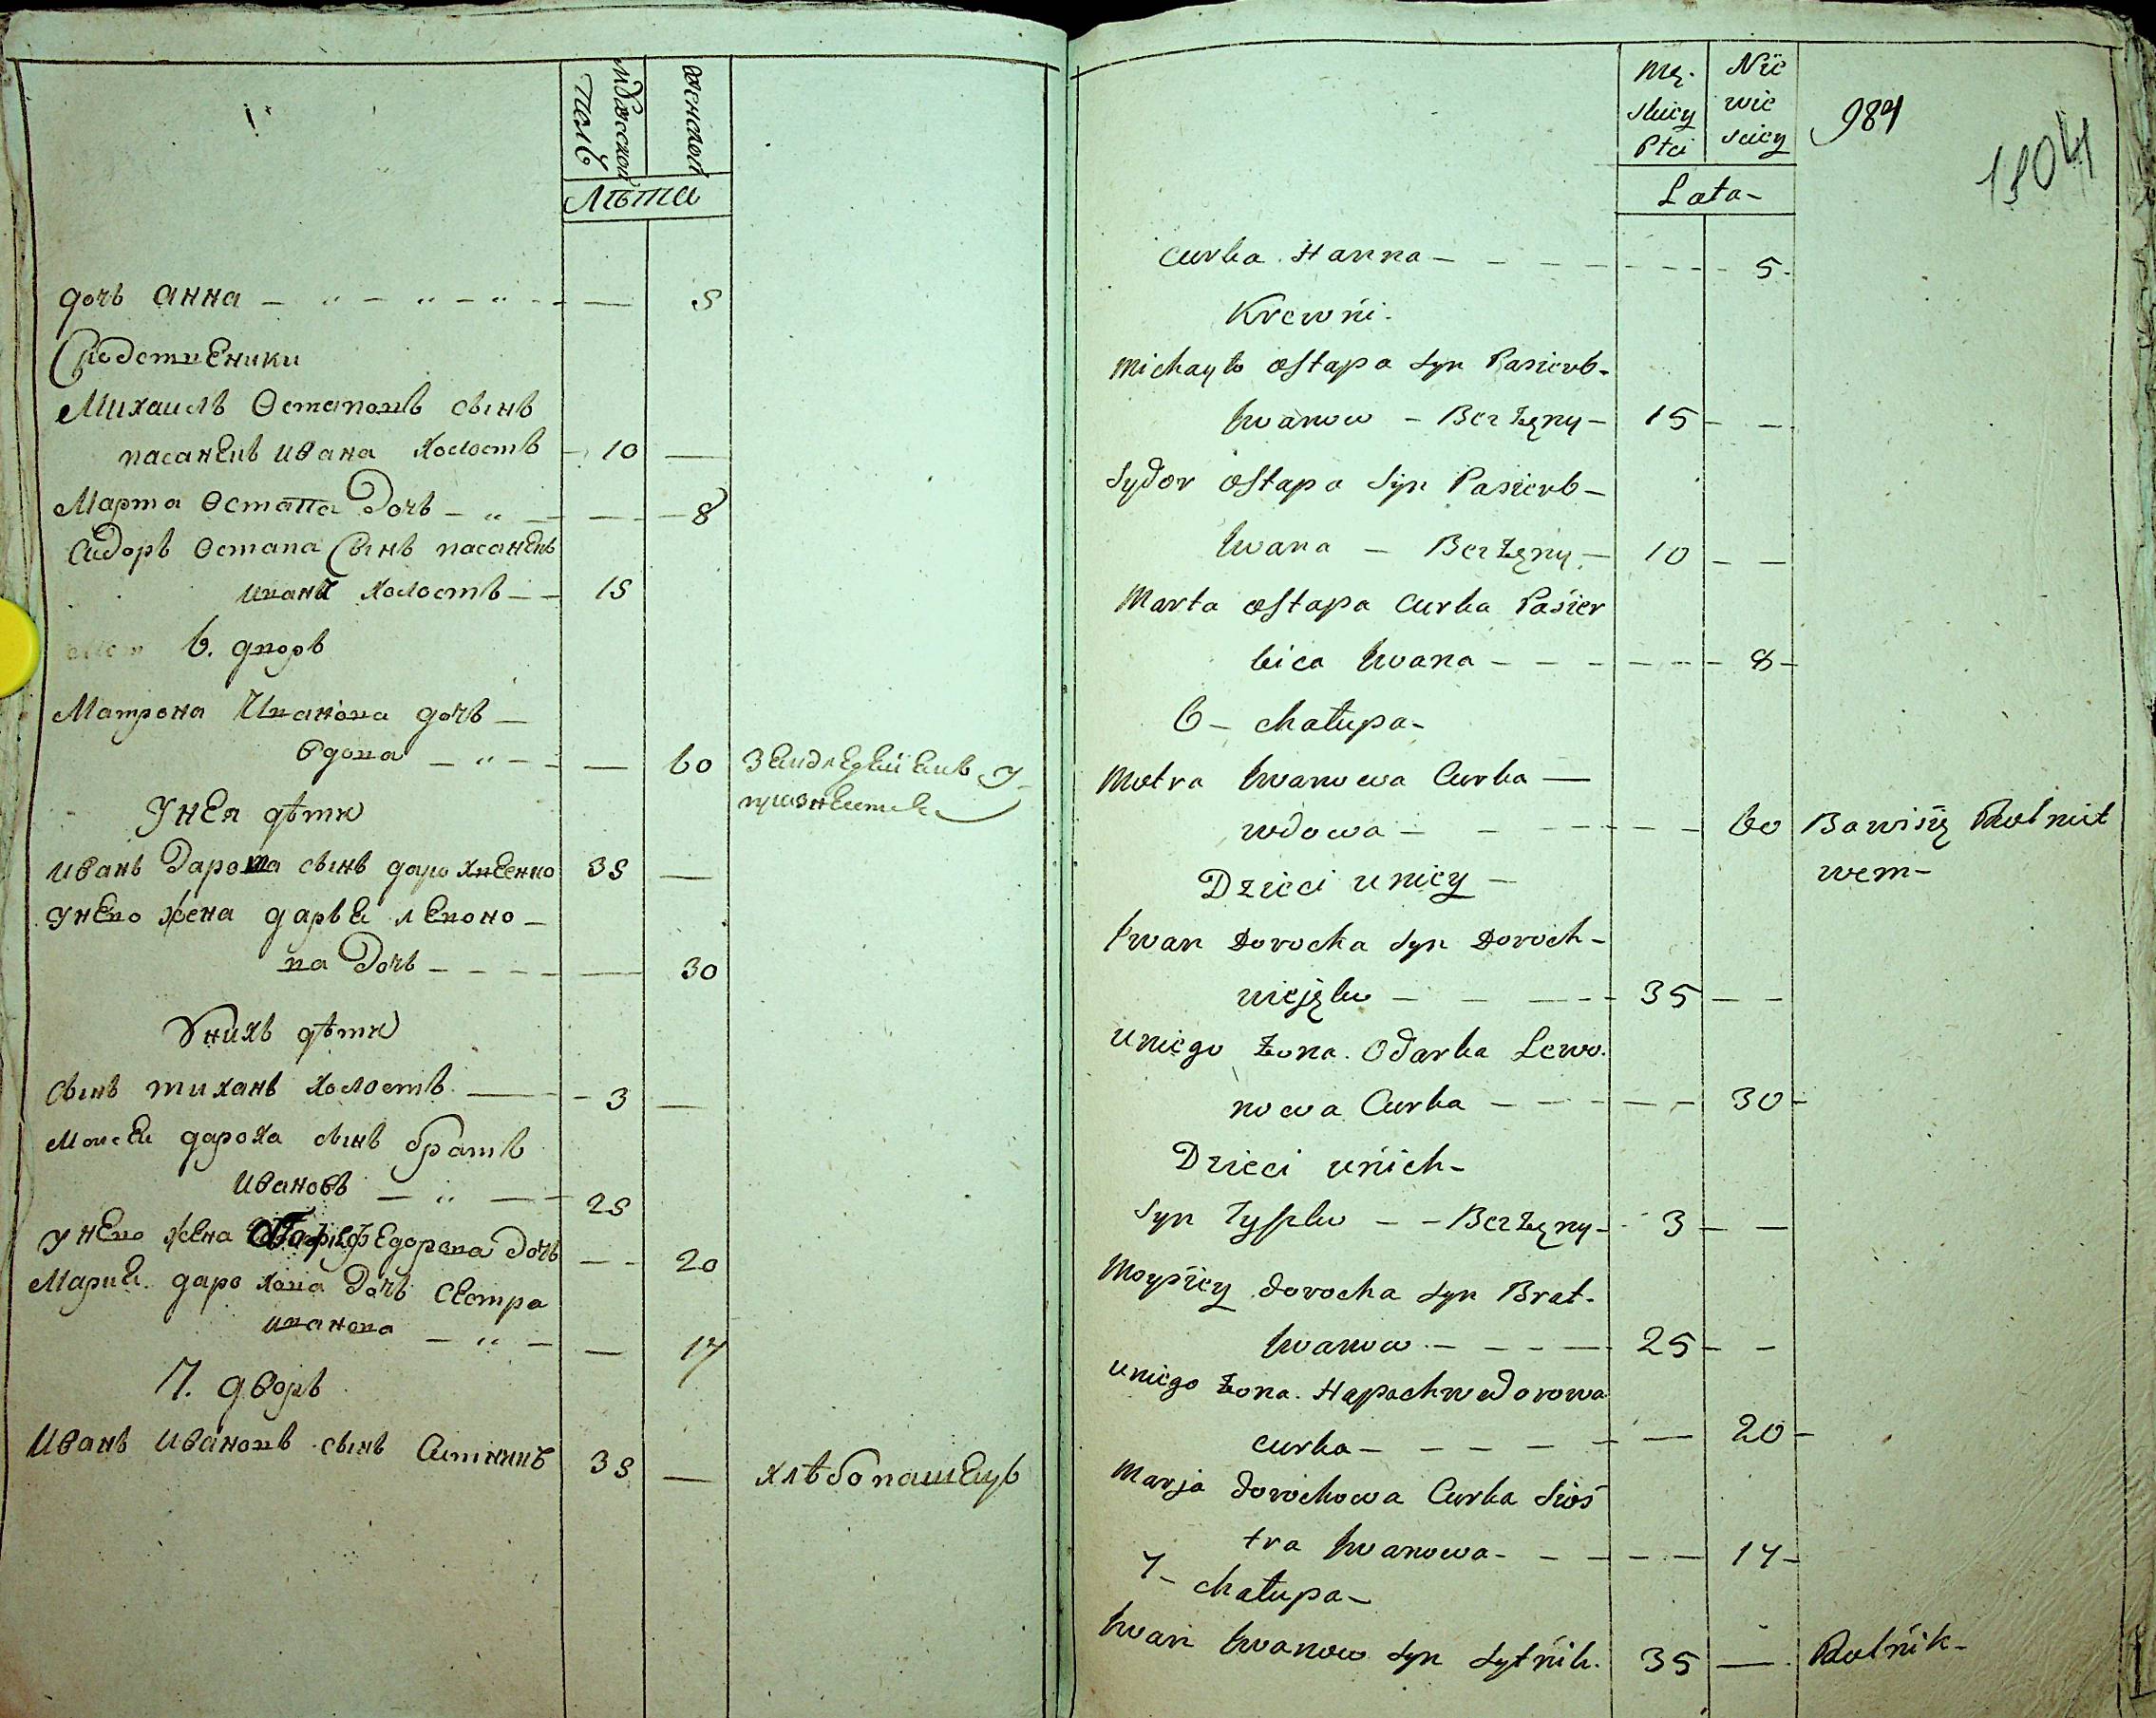 мужеской
полъ
женской
лѣта
дочь анна 5
Сродственики
Михаилъ Остаповъ сынъ
пасанецъ ивана холостъ 10 —
Марта Остапа Дочь — 8
Сидоръ Остапа Сынъ пасанецъ
ивана холостъ 15
6. дворъ
Матрена Иванова дочь
вдова — 60
У нея дѣти
иванъ Дароха сынъ 35 —
у нево жена дарья левоно
ва Дочь — 30
У нихъ дѣти
сынъ тиханъ холостъ 3 —
Моисей дароха сынъ братъ
Ивановъ 25
у нево жена Федорова Дочь — 20
Мария дарохова Дочь Сестра
иванова — 17
7. дворъ
Иванъ Ивановъ сынъ Ситникъ 35 — хлѣбопашецъ
Mę-
skiey
Płci
Nie
wie
sciey
984
1804
Lata-
curka Hanna — 5-
Krewni-
Michayło Ostapa syn Pasierb-
Iwanow - Bezżęny - 15 - -
Sydor Ostapa syn Pasierb-
Iwana - Bezżęny - 10 - -
Marta Ostapa Curka Pasier
bica Iwana - 8 -
6 - chałupa-
Motra Iwanowa Curka —
wdowa - 60 Bawisię Rolnict
wem-
Dzieci u niey -
Iwan Dorocha syn Doroch-
wiejęko - 35 - -
u niego żona. Odarka Lewo-
nowa Curka - 30 -
Dzieci u nich-
syn Tyszko - - Bezżęny - 3 - -
Moysiey Dorocha syn Brat-
Iwanow - 25 - -
u niego żona. Hapachwedorowa
curka - 20 -
Marja Dorochowa Curka Sios
tra Iwanowa - 17 -
7 -
chałupa-
Iwan Iwanow syn Sytnik. 35 — Rolnik-